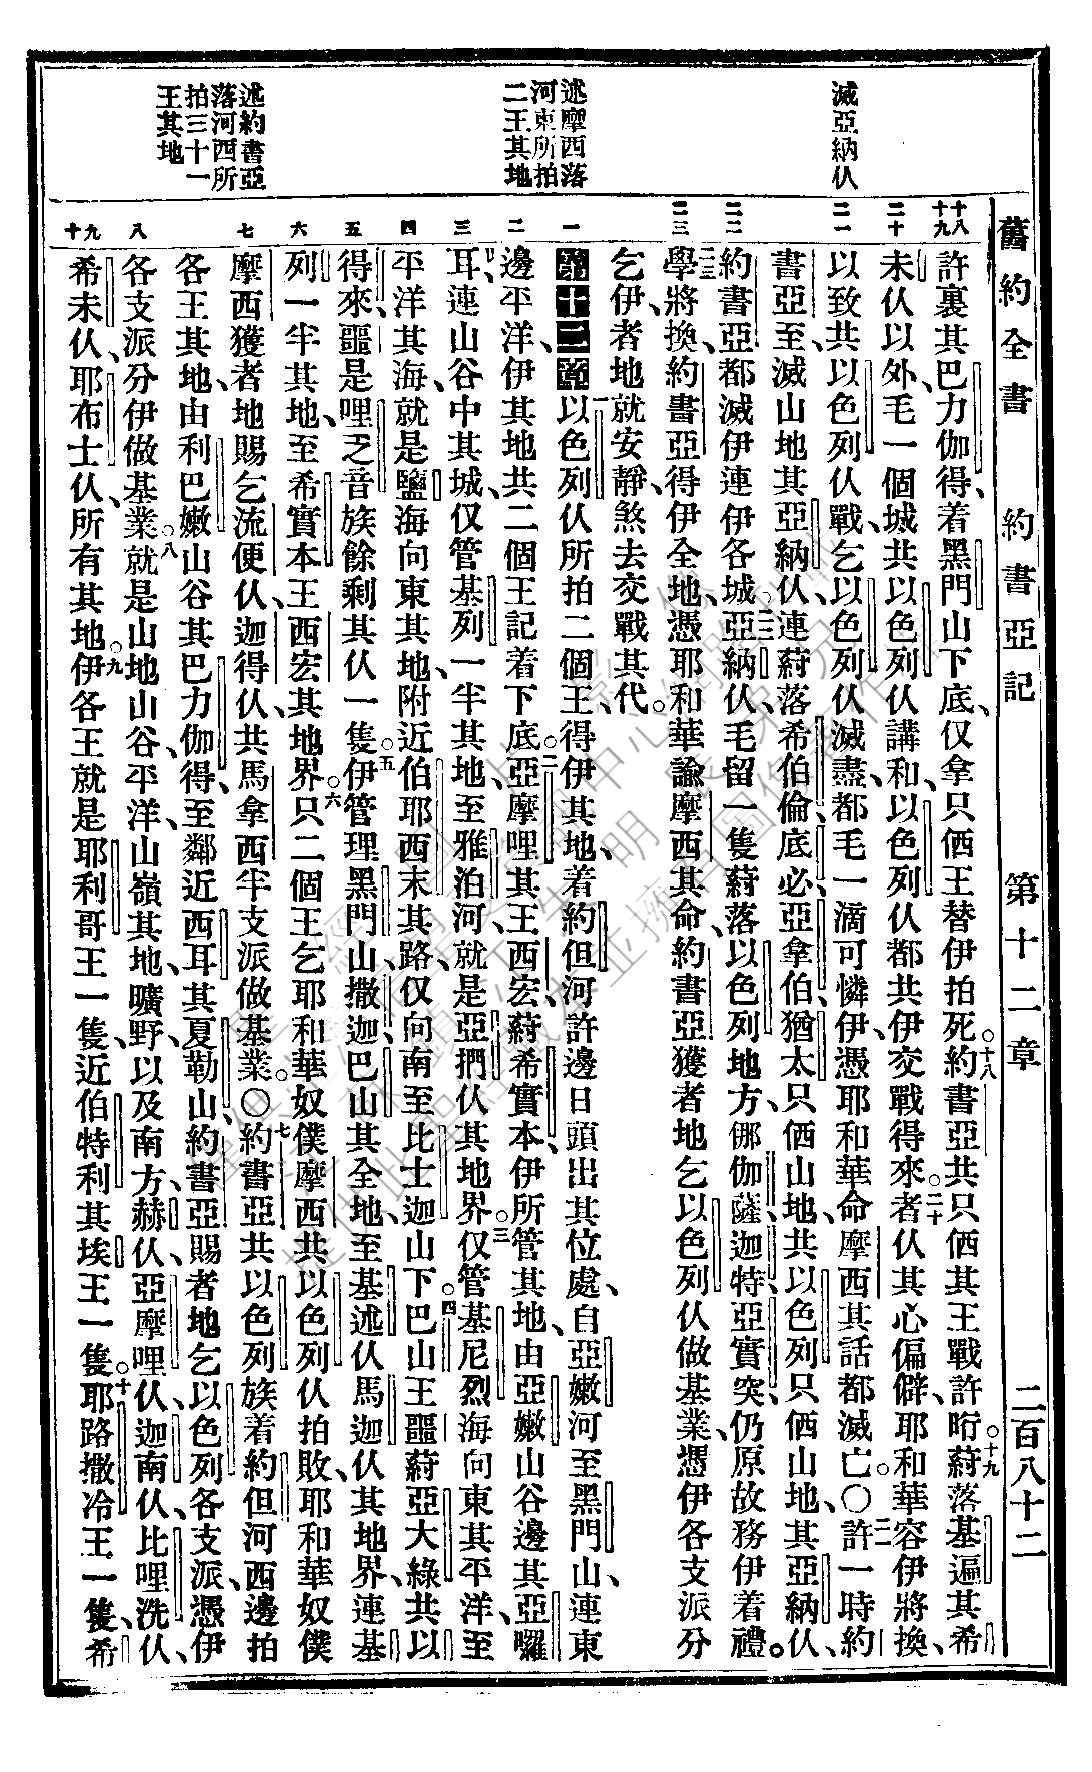 舊約全書 約書亞記 第十二章 二百八十二
滅亞納仈
述摩西落
河東所拍
二王其地
述約書亞
落河西所
拍三十一
王其地
十八 十九 二十 二一 二二 二三 一 二 三 四 五 六 七 八 九 十
許裏其巴力伽得、着黑門山下底、仅拿只俩王替伊拍死。十八約書亞共只俩其王戰許晍。十九蔚落基遍其希
未仈以外、毛一個城共以色列仈講和、以色列仈都共伊交戰得來。二十者仈其心偏僻、耶和華容伊將換、
以致共以色列仈戰、乞以色列仈滅盡、都毛一滴可憐伊、憑耶和華命摩西其話都滅亡。〇二一許一時約
書亞至滅山地其亞納仈、連蔚落希伯倫、底必、亞拿伯、猶太只俩山地、共以色列只俩山地、其亞納仈、
約書亞都滅伊連伊各城。二二亞納仈毛留一隻蔚落以色列地方、㑚伽薩、迦特、亞實突、仍原故務伊着禮。
二三學將換、約書亞得伊全地、憑耶和華諭摩西其命、約書亞獲者地乞以色列仈做基業、憑伊各支派分
乞伊、者地就安靜、煞去交戰其代。
第十二章 一以色列仈所拍二個王、得伊其地、着約但河許邊日頭出其位處、自亞嫩河至黑門山、連東
邊平洋、伊其地共二個王記着下底。二亞摩哩其王西宏、蔚希實本、伊所管其地、由亞嫩山谷邊其亞囉
耳、連山谷中其城、仅管基列一半其地、至雅泊河、就是亞捫仈其地界。三仅管基尼烈海向東其平洋、至
平洋其海、就是鹽海向東其地、附近伯耶西末其路、仅向南至比士迦山下。四巴山王噩、蔚亞大綠共以
得來、噩是哩乏音族餘剩其仈一隻。五伊管理黑門山、撒迦、巴山其全地、至基述仈、馬迦仈其地界、連基
列一半其地、至希實本王西宏其地界。六只二個王乞耶和華奴僕摩西共以色列仈拍敗、耶和華奴僕
摩西獲者地賜乞流便仈、迦得仈、共馬拿西半支派做基業。〇七約書亞共以色列族着約但河西邊拍
各王其地、由利巴嫩山谷其巴力伽得、至鄰近西耳其夏勒山、約書亞賜者地乞以色列各支派、憑伊
各支派分伊做基業。八就是山地、山谷、平洋、山嶺其地、曠野、以及南方、赫仈、亞摩哩仈、迦南仈、比哩洗仈、
希未仈、耶布士仈、所有其地。九伊各王就是耶利哥王一隻、近伯特利其埃王一隻。十耶路撒冷王一隻、希